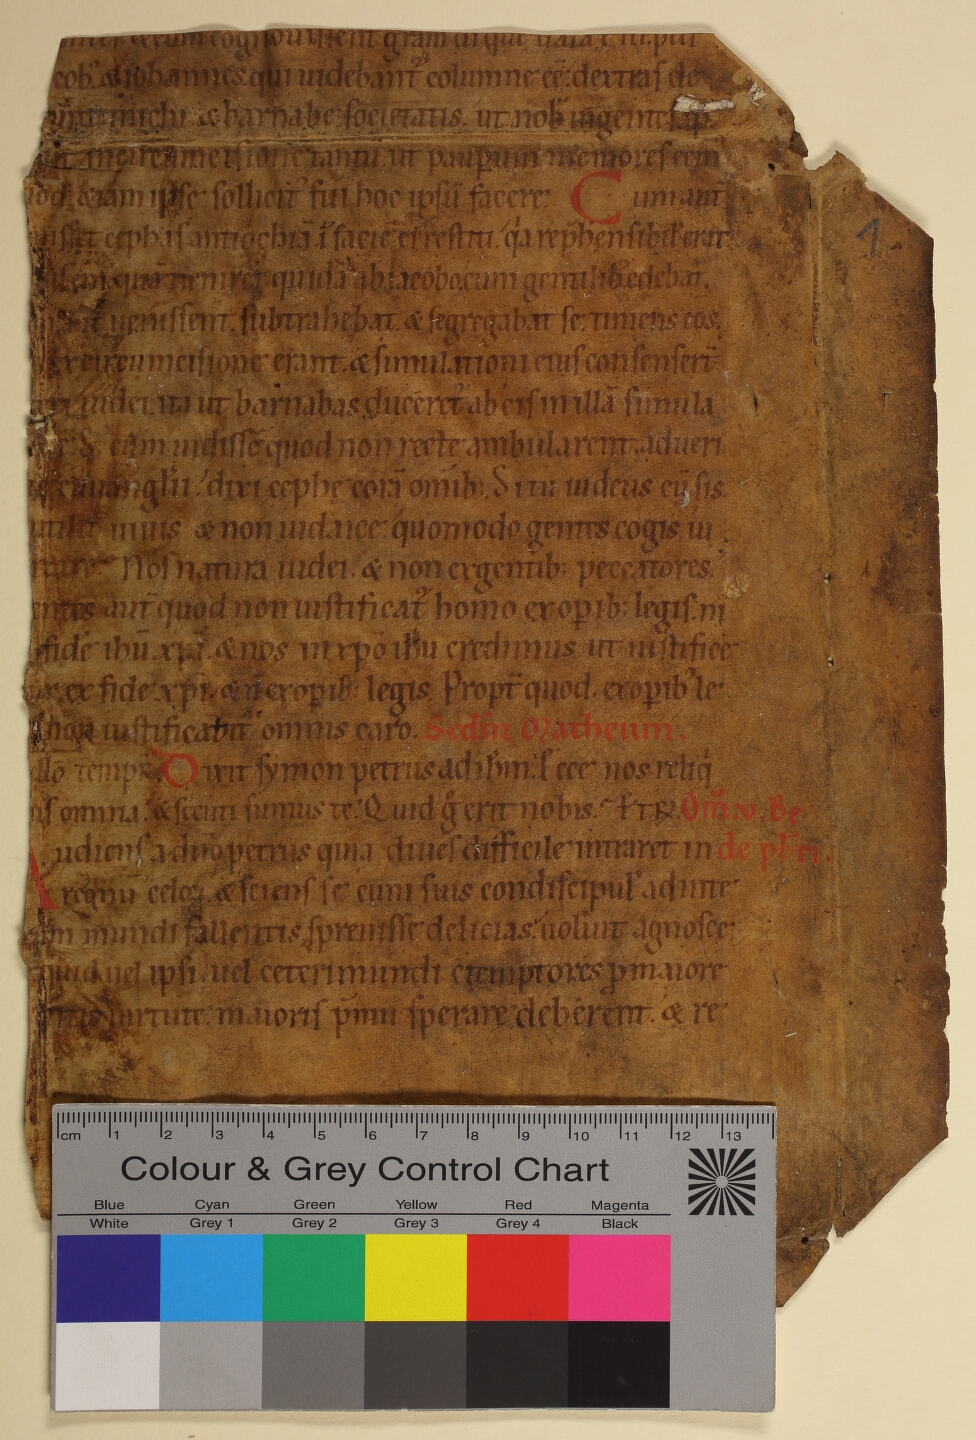 cob. & iohannes. qui uidebant᷒ columne ee͛: dextras de
michi & barnabe societatis. ut nob᷒ in gentes. ip
in circumcisione tantu ut paupum memores eem
qd́ & iam ipse sollicit᷒ fui hoc ipsū facere. Cum aut̄
cephas antiochiā ī facie ei restiti. q̓a rep̄hensibil᷒ erat
quā ueniret quidā ab iacobo. cum gentilib᷒ edebat.
uenissent. subtrahebat. & segregabat se. timens eos.
ex circumcisione erant. & simulationi eius consensert̄
iudei. ita ut barnabas duceret᷒ ab eis in illā simula
S; cum uidissē quod non recte ambularent. ad ueri
euuanglii. dixi cephe corā omib; Si tu iudeus cū sis.
uiuis & non iudaice: quomodo gentes cogis iu
Nos natura iudei. & non ex gentib; peccatores.
entes aut̄ quod non iustificat᷒ homo ex opib; legis. ni
fidē ihū xp̄i. & nos in xp̄o ihū credimus ut iustifice
ex fide xp̄i. & n̄ ex opib; legis. Propt̄ quod. ex opib᷒ le
non iustificabit᷒ omnis caro. Scdm Matheum.
Illō tempr. Dixit symon petrus ad ihm̄. Ecce nos reliq̇
omnia. & secuti sumus te. Quid g̊ erit nobis. & r͛. Om̄. v. Be
Audiens a dn̄o petrus quia diues difficile intraret in de pb̄ri.
regnū celoꝝ. & sciens se cum suis condiscipul᷒
mundi fallentis spreuisse delicias. uoluit agnosce
quid uel ipsi. uel ceteri mundi ctemptores p maiore
uirtute. maioris p̄mii sperare deberent. & re
1
cm 1 2 3 4 5 6 7 8 9 10 11 12 13
Colour & Grey Control Chart
Blue Cyan Green Yellow Red Magenta
White Grey 1 Grey 2 Grey 3 Grey 4 Black